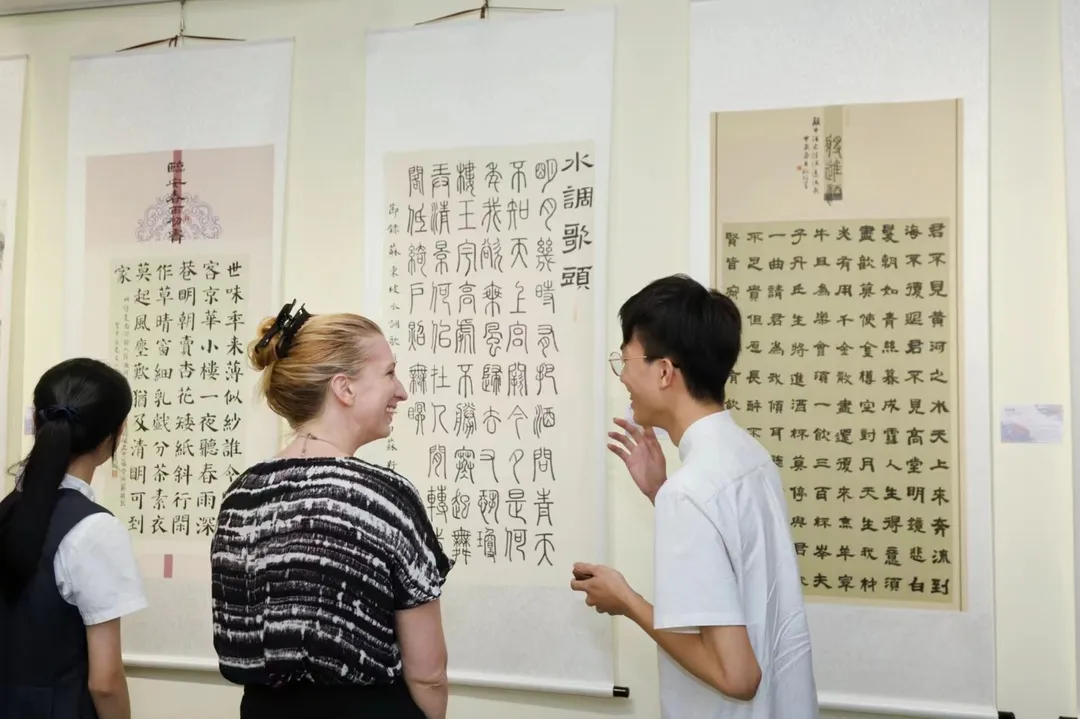 臨安春雨初霽
世味秊来薄似紗誰令
客京華小樓一夜聽春雨深
巷明朝賣杏花矮紙斜行閑
作草晴窗細乳戲分茶素衣
莫起風塵歎猶及清明可到
家
水調歌頭
明月幾時有把酒問青天
不知天上宮闕今夕是何
年我欲乘風歸去又恐瓊
樓玉宇高處不勝寒起舞
弄清影何似在人間轉朱
閣低綺戶照無眠
節錄蘇東坡水調歌
將進酒
君不見黃河之水天上來奔流到
海不復迴君不見高堂明鏡悲白
髮朝如青絲暮成雪人生得意須
盡歡莫使金樽空對月天生我材
必有用千金散盡還復來烹羊宰
牛且為樂會須一飲三百杯岑夫
子丹丘生將進酒杯莫停與君
一曲請君為我傾耳聽
不足貴但願長醉不
賢皆寂 有飲